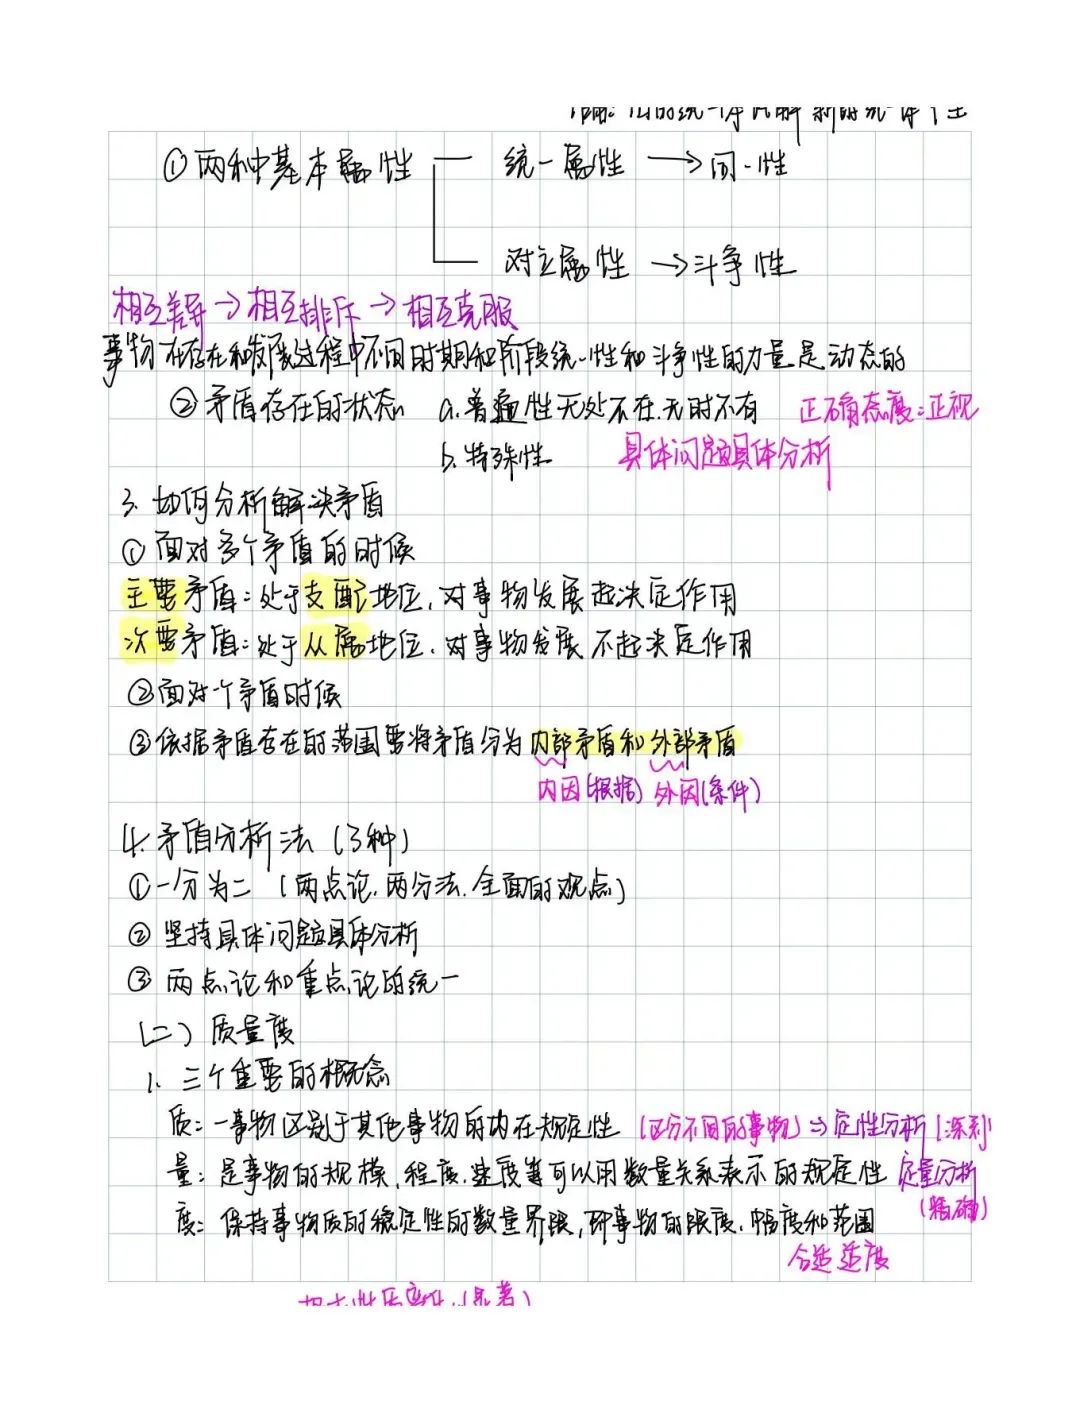 旧的统一体瓦解 新的统一体产生
①两种基本属性 统一属性 → 同一性
对立属性 → 斗争性
相互差异 → 相互排斥 → 相互克服
事物在存在和发展过程中不同时期和阶段统一性和斗争性的力量是动态的
②矛盾存在的状态 a.普遍性无处不在.无时不有 正确态度:正视
b.特殊性 具体问题具体分析
3. 如何分析解决矛盾
①面对多个矛盾的时候
主要矛盾:处于支配地位,对事物发展起决定作用
次要矛盾:处于从属地位,对事物发展不起决定作用
②面对个矛盾时候
③依据矛盾存在的范围要将矛盾分为内部矛盾和外部矛盾
内因(根据) 外因(条件)
4.矛盾分析法(3种)
①一分为二(两点论.两分法.全面的观点)
②坚持具体问题具体分析
③两点论和重点论的统一
(二)质量度
1. 三个重要的概念
质:一事物区别于其他事物的内在规定性 (区分不同的事物) ⇒ 定性分析(深刻
量:是事物的规模,程度.速度等可以用数量关系表示的规定性 定量分析
(精确)
度:保持事物质的稳定性的数量界限,即事物的限度.幅度和范围
合适适度